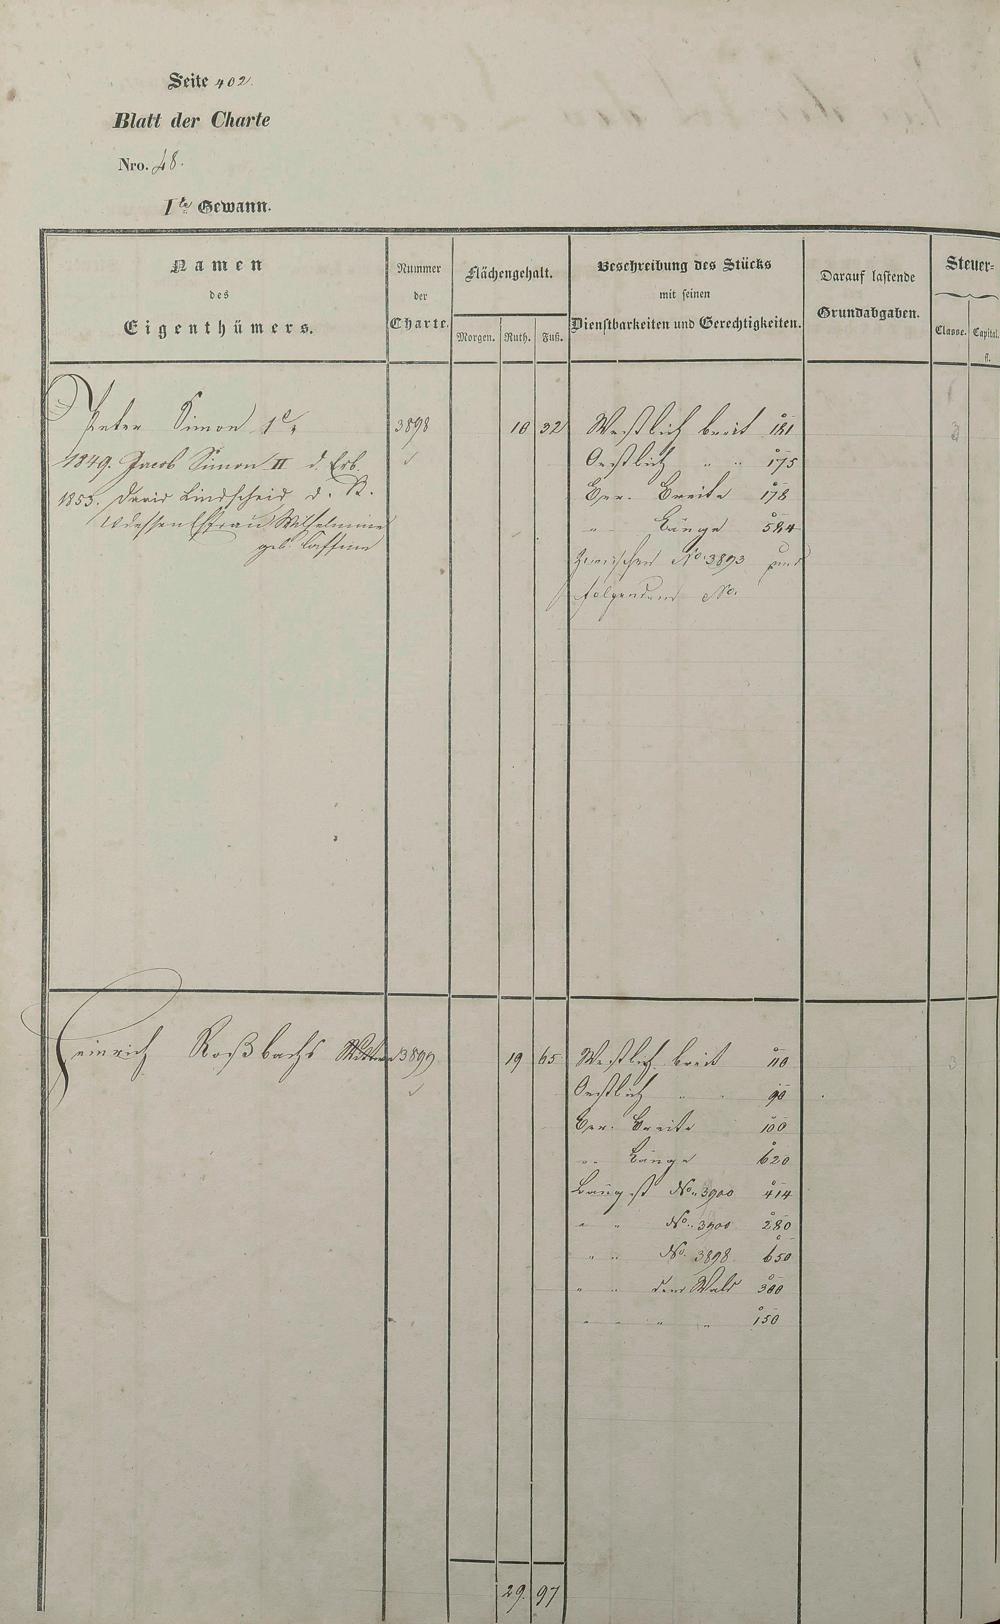 Seite 402.
Blatt der Charte
Nro. 48.
Ite Gewann.
Namen des Eigenthümers.
Nummer der Charte.
Flächengehalt.
Morgen. Ruth. Fuß.
Beschreibung des Stücks mit seinen Dienstbarkeiten und Gerechtigkeiten.
Darauf lastende Grundabgaben.
Steuer=
Classe. Capital. fl.
Peter Simon 1r 3898 10 32 Westlich breit 181
1849. Jacob Simon II d. Erb. Oestlich " " 175
1853. David Lindscheid d. K. Ber. Breite 178
dessen Ehfrau Wilhelmine " Länge 584
geb.
Zwischen No. 3893 und
folgendem No.
3
Heinrich Roßbachs Wittwe 3899 19 65 Westlich breit 110
Oestlich " " 90
Ber. Breite 100
" Länge 620
Längst No. 3900 414
" " No. 3900 280
" " No. 3898 650
" " dem Wald 300
" " " " 150
3
29. 97